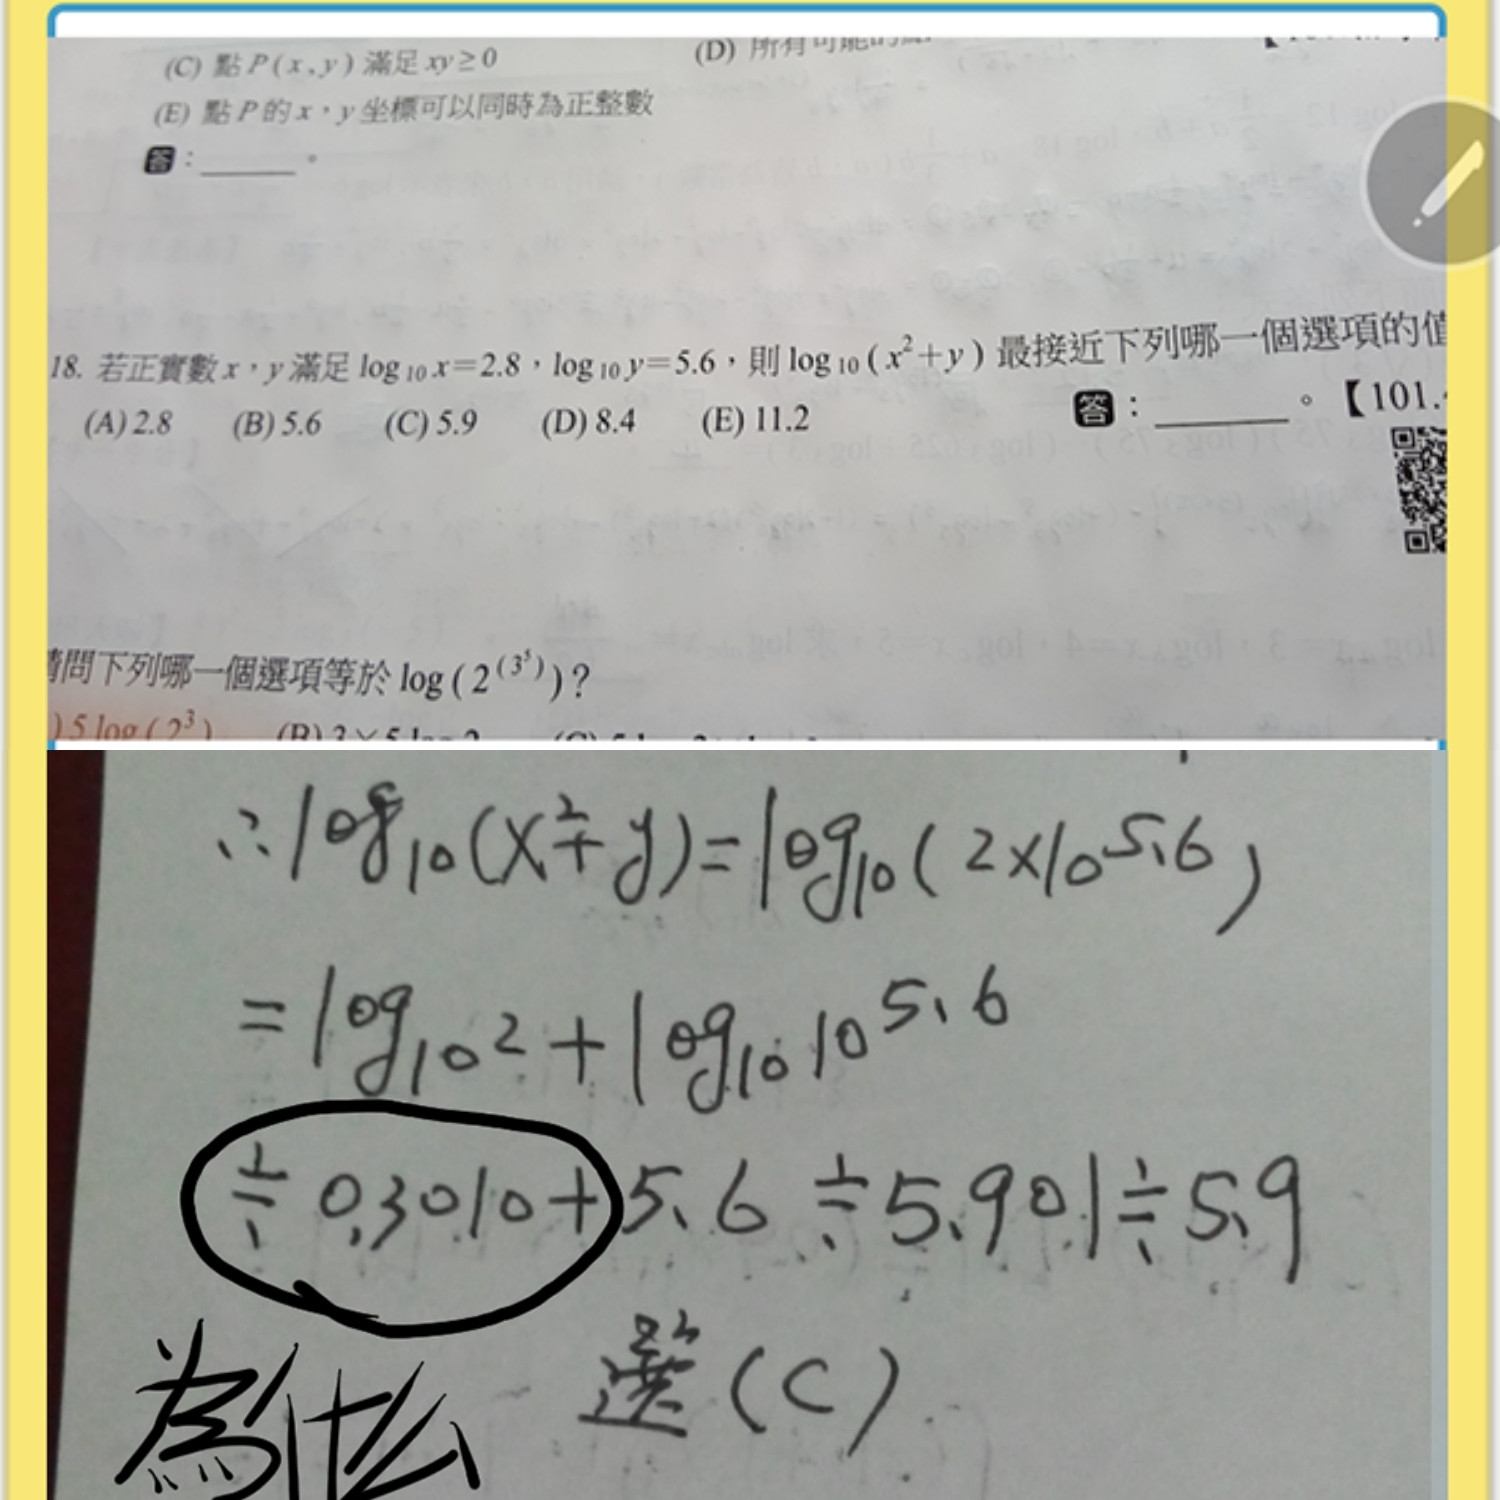 (C) 點 P ( x , y ) 滿足 xy ≥ 0
(D) 所有可能的
(E) 點 P 的 x，y 坐標可以同時為正整數
答：______。
18. 若正實數 x，y 滿足 log₁₀ x=2.8，log₁₀ y=5.6，則 log₁₀ ( x²+y ) 最接近下列哪一個選項的值
(A) 2.8 (B) 5.6 (C) 5.9 (D) 8.4 (E) 11.2
答：______。【101.
問下列哪一個選項等於 log ( 2^(3⁵) ) ?
) 5 log ( 2³ ) (B) 3 × 5 log 2
∴ log₁₀(x²+y) = log₁₀( 2×10^5.6 )
= log₁₀2 + log₁₀10^5.6
≒ 0.3010 + 5.6 ≒ 5.901 ≒ 5.9
為什么
選 (C)